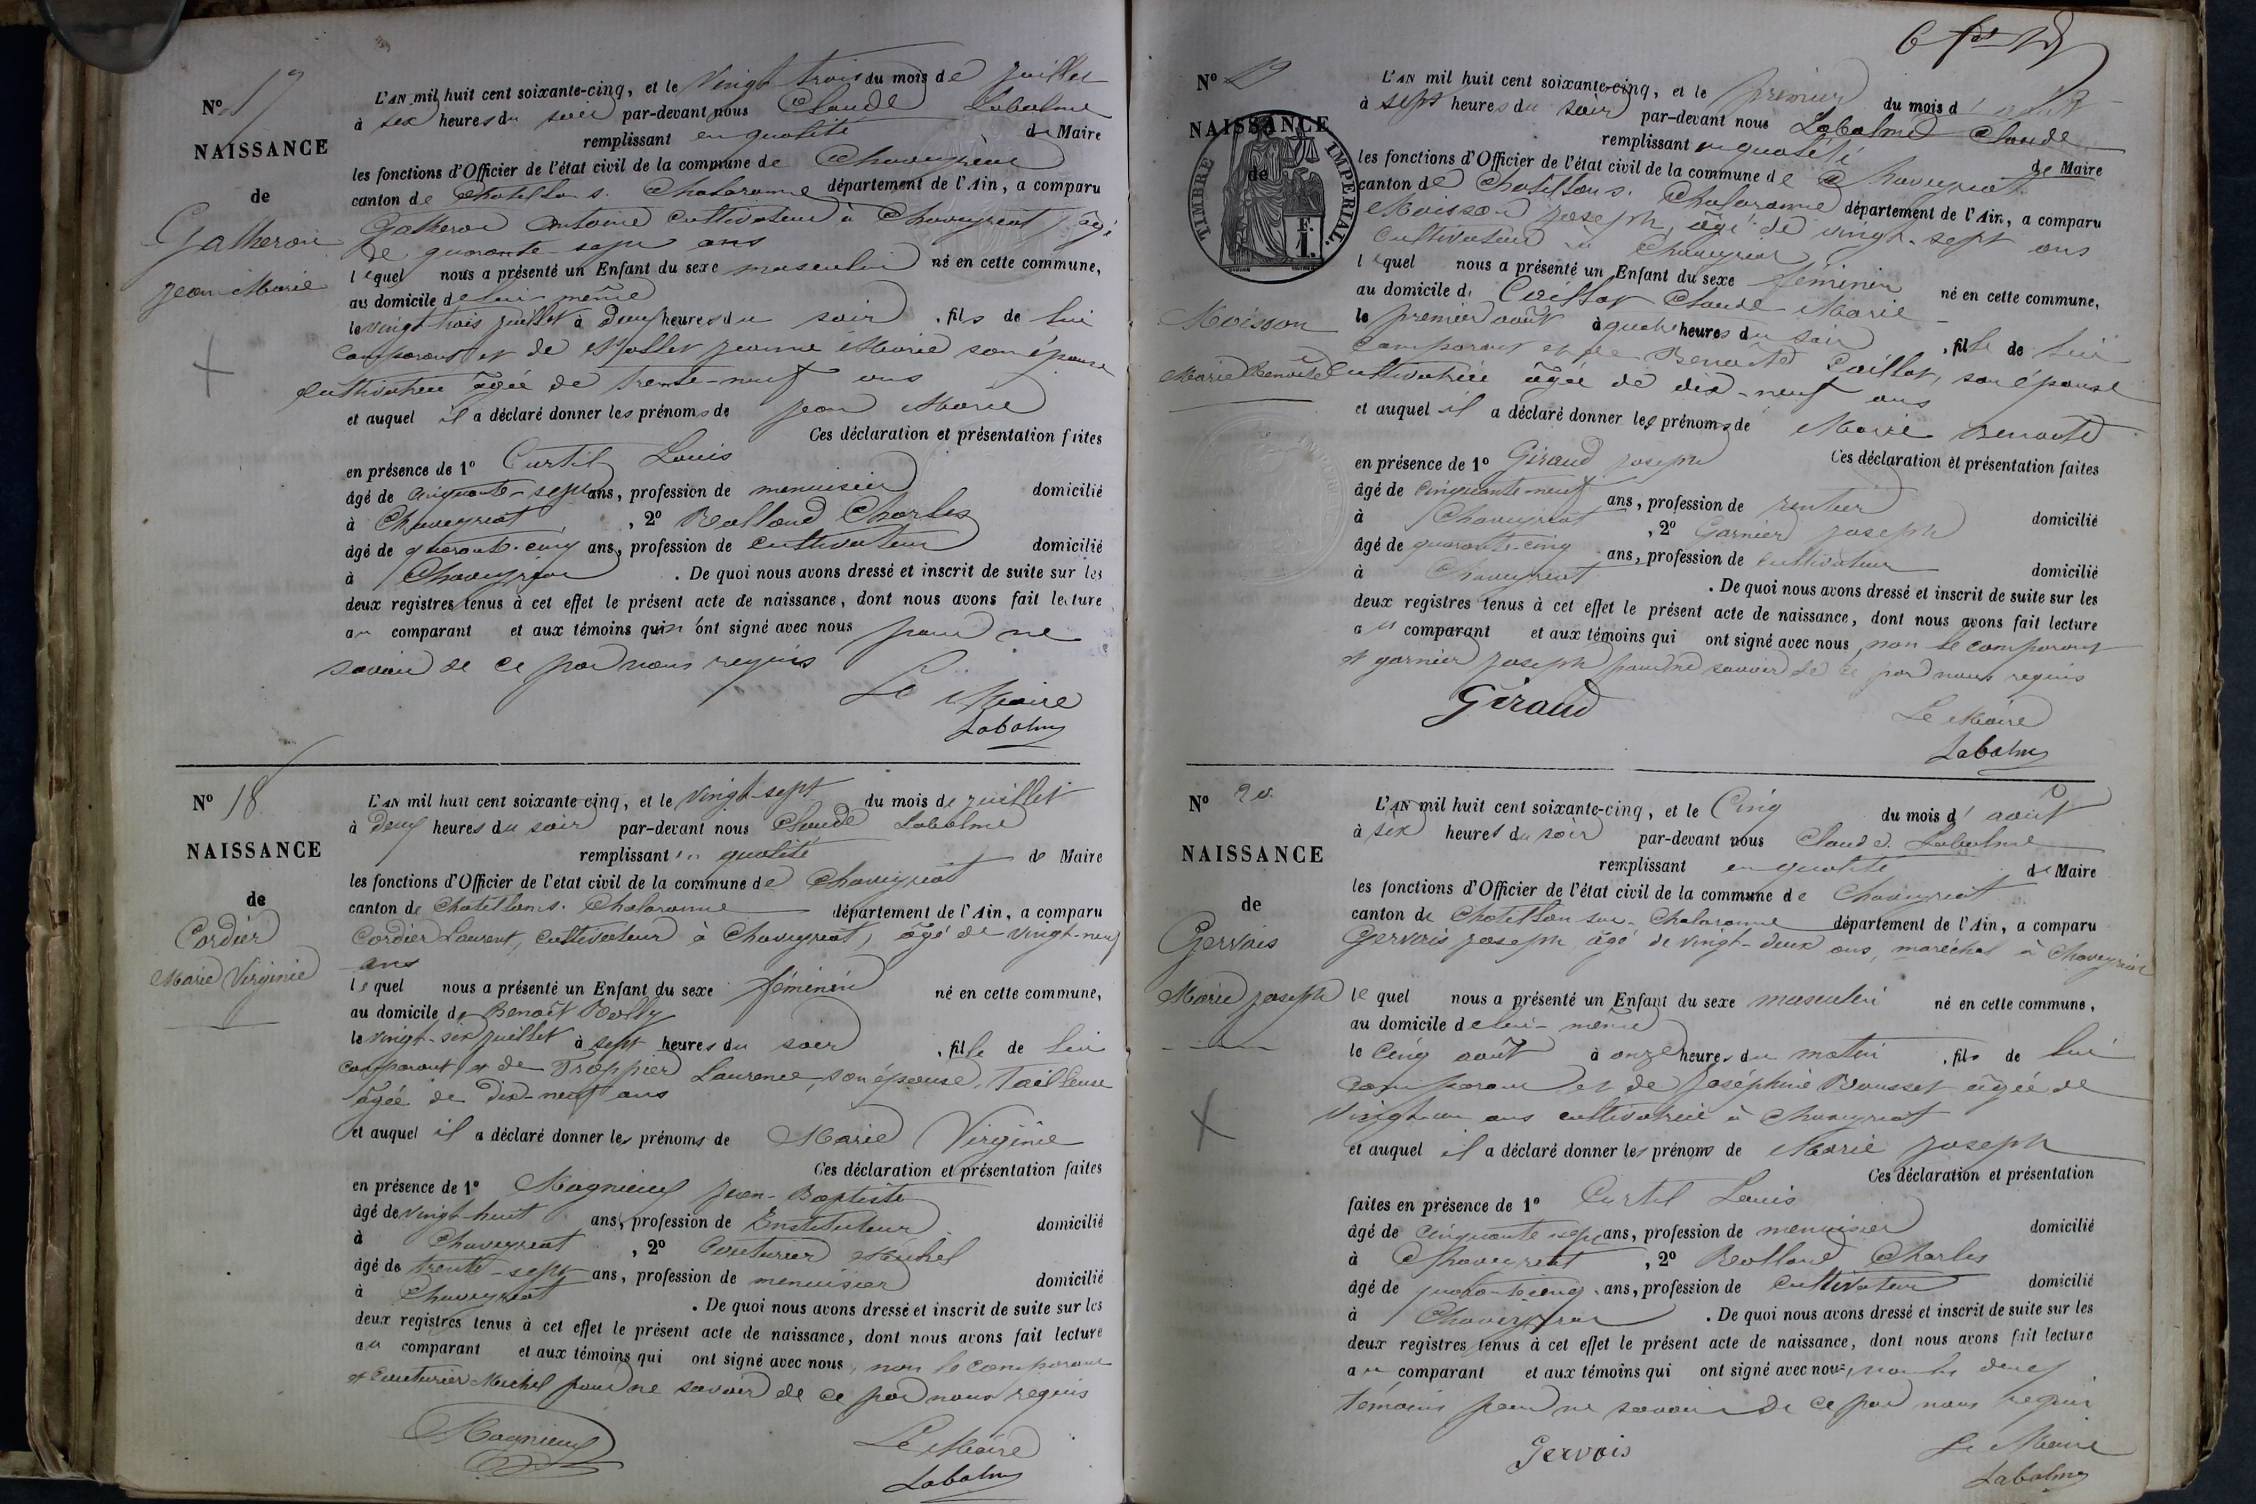 N° 17
NAISSANCE
de
Gatheron
Jean Marie
L'AN mil huit cent soixante-cinq, et le vingt-trois du mois de juillet
à six heures du soir par-devant nous Claude Labalme
remplissant en qualité de Maire
les fonctions d'Officier de l'état civil de la commune de Chaveyriat
canton de Chatillon s. Chalaronne département de l'Ain, a comparu
Gatheron Antoine cultivateur à Chaveyriat, âgé
de quarante-sept ans
lequel nous a présenté un Enfant du sexe masculin né en cette commune,
au domicile de lui même
le vingt trois juillet à deux heures du soir, fils de lui
comparant et de Mollet Jeanne Marie son épouse
cultivatrice âgée de trente-neuf ans
et auquel il a déclaré donner les prénoms de Jean Marie
Ces déclaration et présentation faites
en présence de 1° Curtil Louis
âgé de cinquante-sept ans, profession de menuisier domicilié
à Chaveyriat, 2° Rolland Charles
âgé de quarante-cinq ans, profession de cultivateur domicilié
à Chaveyriat. De quoi nous avons dressé et inscrit de suite sur les
deux registres tenus à cet effet le présent acte de naissance, dont nous avons fait lecture
au comparant et aux témoins qui n'ont signé avec nous pour ne
savoir de ce par nous requis
Le Maire
Labalme
N° 18
NAISSANCE
de
Cordier
Marie Virginie
L'AN mil huit cent soixante-cinq, et le vingt-sept du mois de juillet
à deux heures du soir par-devant nous Claude Labalme
remplissant en qualité de Maire
les fonctions d'Officier de l'état civil de la commune de Chaveyriat
canton de Chatillon s. Chalaronne département de l'Ain, a comparu
Cordier Laurent, cultivateur à Chaveyriat, âgé de vingt-neuf
ans
lequel nous a présenté un Enfant du sexe féminin né en cette commune,
au domicile de Benoît
le vingt-six juillet à sept heures du soir, fille de lui
comparant et de Laurence, son épouse, Tailleuse
âgée de dix-neuf ans
et auquel il a déclaré donner les prénoms de Marie Virginie
Ces déclaration et présentation faites
en présence de 1° Magnieux Jean-Baptiste
âgé de vingt-huit ans, profession de Instituteur domicilié
à Chaveyriat, 2° Couturier Michel
âgé de trente-sept ans, profession de menuisier domicilié
à Chaveyriat. De quoi nous avons dressé et inscrit de suite sur les
deux registres tenus à cet effet le présent acte de naissance, dont nous avons fait lecture
au comparant et aux témoins qui ont signé avec nous, non le comparant
et Couturier Michel pour ne savoir de ce par nous requis
Magnieux
Le Maire
Labalme
N° 19
NAISSANCE
de
TIMBRE IMPERIAL
1 F.
Moisson
Marie Benoîte
L'AN mil huit cent soixante-cinq, et le premier du mois d'août
à sept heures du soir par-devant nous Labalme Claude
remplissant en qualité de Maire
les fonctions d'Officier de l'état civil de la commune de Chaveyriat
canton de Chatillon s. Chalaronne département de l'Ain, a comparu
Moisson Joseph, âgé de vingt-sept ans
cultivateur à Chaveyriat
lequel nous a présenté un Enfant du sexe féminin né en cette commune,
au domicile de Caillat Claude Marie
le premier août à quatre heures du soir, fille de lui
comparant et de Benoîte Caillat, son épouse
cultivatrice âgée de dix-neuf ans
et auquel il a déclaré donner les prénoms de Marie Benoîte
Ces déclaration et présentation faites
en présence de 1° Giraud Joseph
âgé de cinquante-neuf ans, profession de rentier domicilié
à Chaveyriat, 2° Garnier Joseph
âgé de quarante-cinq ans, profession de cultivateur domicilié
à Chaveyriat. De quoi nous avons dressé et inscrit de suite sur les
deux registres tenus à cet effet le présent acte de naissance, dont nous avons fait lecture
au comparant et aux témoins qui ont signé avec nous, non le comparant
et garnier Joseph pour ne savoir de ce par nous requis
Giraud
Le Maire
Labalme
N° 20
NAISSANCE
de
Gervais
Marie Joseph
L'AN mil huit cent soixante-cinq, et le Cinq du mois d'août
à six heures du soir par-devant nous Claude Labalme
remplissant en qualité de Maire
les fonctions d'Officier de l'état civil de la commune de Chaveyriat
canton de Chatillon sur-Chalaronne département de l'Ain, a comparu
Gervais Joseph âgé de vingt-deux ans, maréchal à Chaveyriat
lequel nous a présenté un Enfant du sexe masculin né en cette commune,
au domicile de lui-même
le cinq août à onze heures du matin, fils de lui
comparant et de Joséphine Rousset âgée de
vingt-un ans cultivatrice à Chaveyriat
et auquel il a déclaré donner les prénoms de Marie Joseph
Ces déclaration et présentation
faites en présence de 1° Curtil Louis
âgé de cinquante-sept ans, profession de menuisier domicilié
à Chaveyriat, 2° Rolland Charles
âgé de quarante-cinq ans, profession de cultivateur domicilié
à Chaveyriat. De quoi nous avons dressé et inscrit de suite sur les
deux registres tenus à cet effet le présent acte de naissance, dont nous avons fait lecture
au comparant et aux témoins qui ont signé avec nous, non les deux
témoins pour ne savoir de ce par nous requis
Gervais
Le Maire
Labalme